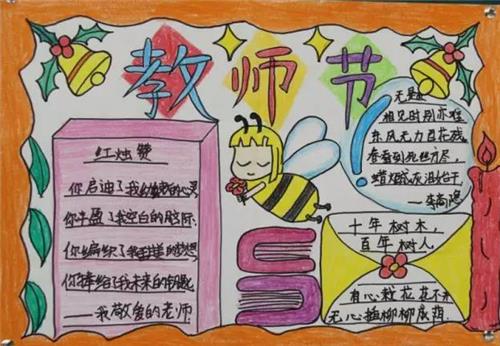 教师节
红烛赞
你启迪了我幼稚的心灵
你丰盈了我空白的脑际
你编织了我的梦想
你捧给了我未来的
——我敬爱的老师
无题
相见时别亦难
东风无力百花残
春蚕到死丝方尽,
蜡炬成灰泪始干
——李商隐
十年树木,
百年树人
有心栽花花不开
无心插柳柳成荫.